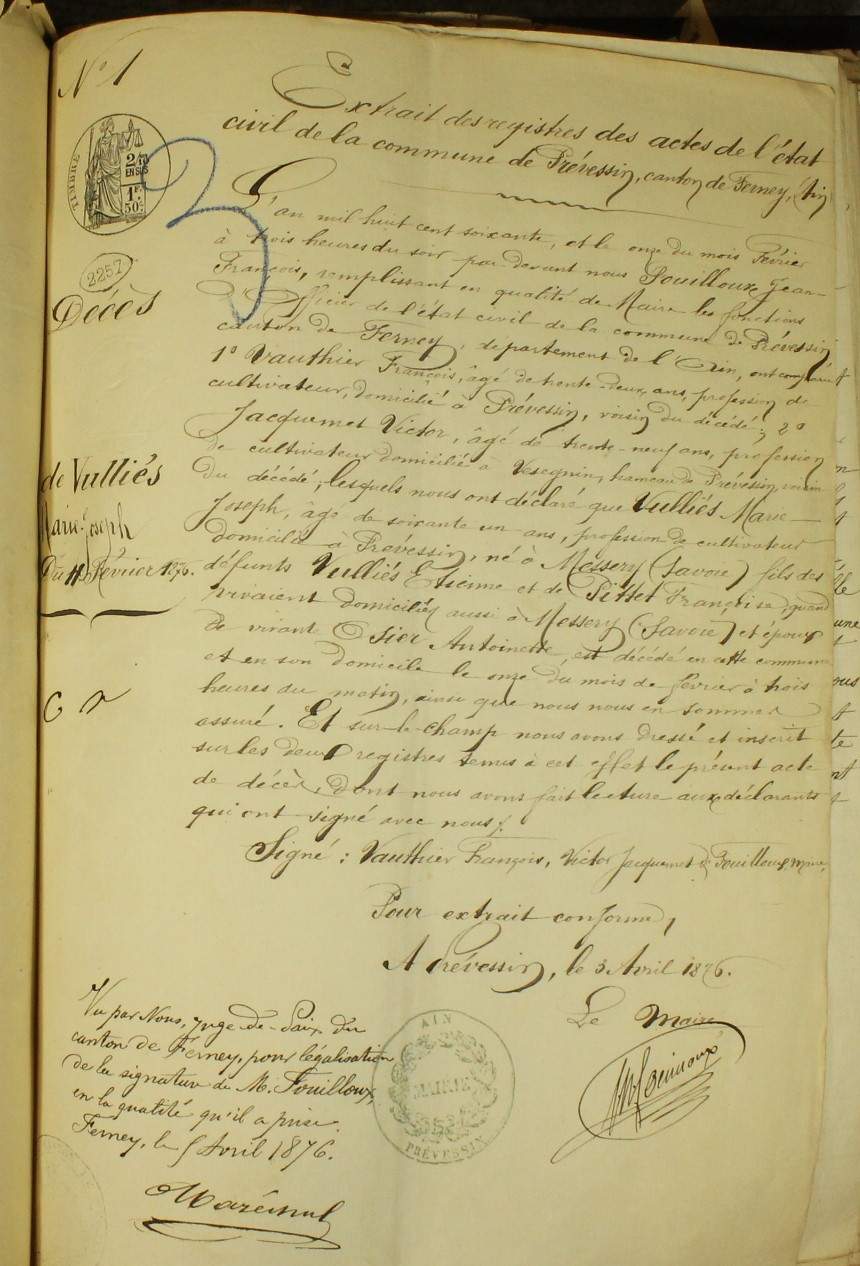 N° 1
Extrait des registres des actes de l'état
civil de la commune de Prévessin, canton de Ferney, (Ain)
TIMBRE
2/10
EN SUS
1F.
50c.
2257
Décès
de Vulliés
Marie-Joseph
Du 11 Février 1876.
L'an mil huit cent soixante, et le onze du mois Février
à trois heures du soir par devant nous Fouilloux Jean-
François, remplissant en qualité de Maire les fonctions
d'Officier de l'état civil de la commune de Prévessin
canton de Ferney, département de l'Ain, ont comparu
1° Vauthier François, âgé de trente-deux ans, profession de
cultivateur, domicilié à Prévessin, voisin du décédé; 2°
Jacquemet Victor, âgé de trente-neuf ans, profession
de cultivateur domicilié à Vesegnin, hameau de Prévessin, voisin
du décédé; lesquels nous ont déclaré que Vulliés Marie-
Joseph, âgé de soixante un ans, profession de cultivateur
domicilié à Prévessin, né à Messery (Savoie) fils des
défunts Vulliés Etienne et de Pittet Françoise, quand
vivaient domiciliés aussi à Messery (Savoie) et époux
de vivant Osier Antoinette, est décédé en cette commune
et en son domicile le onze du mois de février à trois
heures du matin, ainsi que nous nous en sommes
assuré. Et sur-le-champ nous avons dressé et inscrit
sur les deux registres tenus à cet effet le présent acte
de décès, dont nous avons fait lecture aux déclarants
qui ont signé avec nous.
Signé: Vauthier François, Victor Jacquemet & Fouilloux, maire,
Pour extrait conforme,
A Prévessin, le 3 Avril 1876.
Le Maire
Fouilloux
Vu par Nous, Juge-de-Paix du
canton de Ferney, pour légalisation
de la signature de M. Fouilloux,
en la qualité qu'il a prise.
Ferney, le 5 Avril 1876.
AIN
MAIRIE
PRÉVESSIN